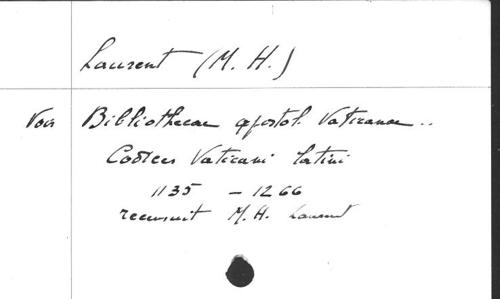 Laurent (M. H.)
Voir Bibliothecae apostol. Vaticanae ..
Codices Vaticani latini
1135 - 1266
recensuit M. H. Laurent